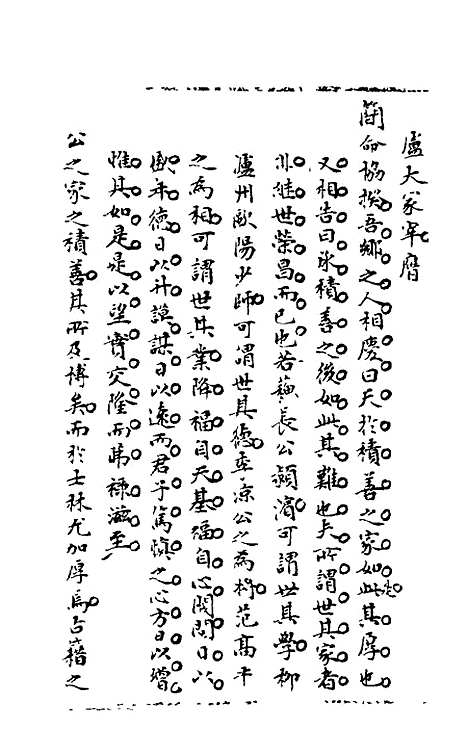 盧大冢宰曆
簡命協揆吾鄉之人相慶曰天於積善之家如此其厚也
又相告曰求積善之後如此其難也夫所謂世其家者
非繼世榮昌而已也若蘇長公潁濱可謂世其學柳
瀘州歐陽少師可謂世其德亞公之為范高平
之為相可謂世其業降福自天基福自心閥閱日以
年德日以升謨謀日以遠而君子篤慎之心方日以增
惟其如是是以望實交隆而歸祿滋至
公之家之積善其所及博矣而於士林尤加厚焉占籍之